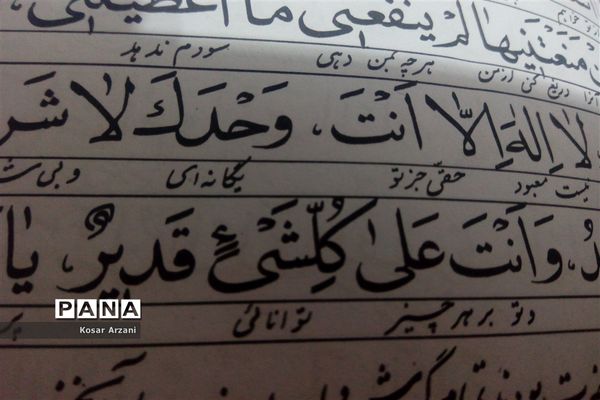 مَنَعْتَنیهَا لَمْ یَنْفَعْنی مَا اَعْطَیْتَنی،
هرچه بمن دهی سودم ندهد
لَا اِلٰهَ اِلَّا اَنْتَ، وَحْدَكَ لَا شَر
نیست معبود حقّی جز تو یگانه‌ای و بی
وَاَنْتَ عَلیٰ كُلِّشَیْءٍ قَدیرٌ، یا
و تو بر هر چیز توانائی
PANA
Kosar Arzani